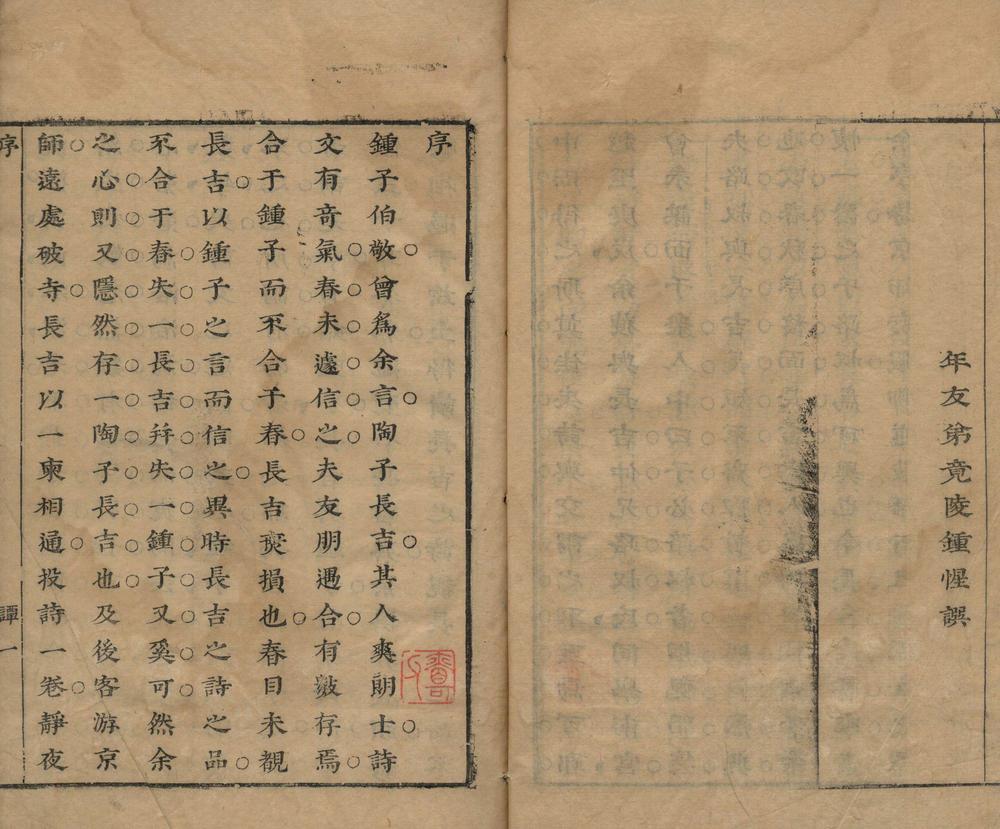 年友弟竟陵鍾惺譔
序
鍾子伯敬曾爲余言陶子長吉其人爽朗士詩
文有奇氣春未遽信之夫友朋遇合有數存焉
合于鍾子而不合于春長吉奚損也春目未覩
長吉以鍾子之言而信之異時長吉之詩之品
不合于春失一長吉并失一鍾子又奚可然余
之心則又隱然存一陶子長吉也及後客游京
師遠處破寺長吉以一柬相通投詩一卷靜夜
序
譚一